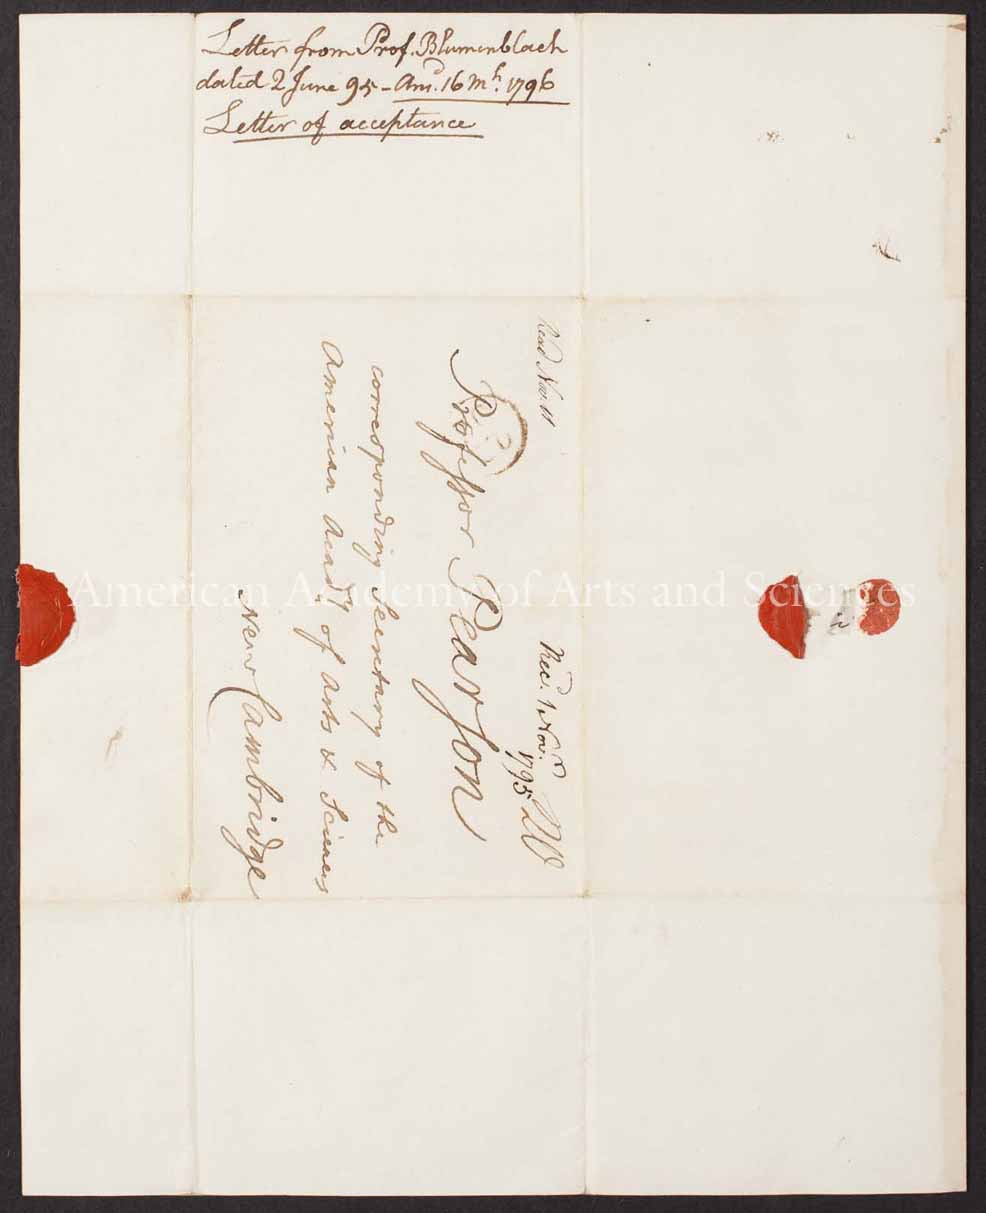 Letter from Prof. Blumenblach
dated 2 June 95 - Ansd. 16 Mh. 1796
Letter of acceptance
Read Nov. 11
Recd. 1 Novr.
1795
Professor Pearson
corresponding Secretary of the
American Acady of arts & Sciences
New Cambridge
American Academy of Arts and Sciences